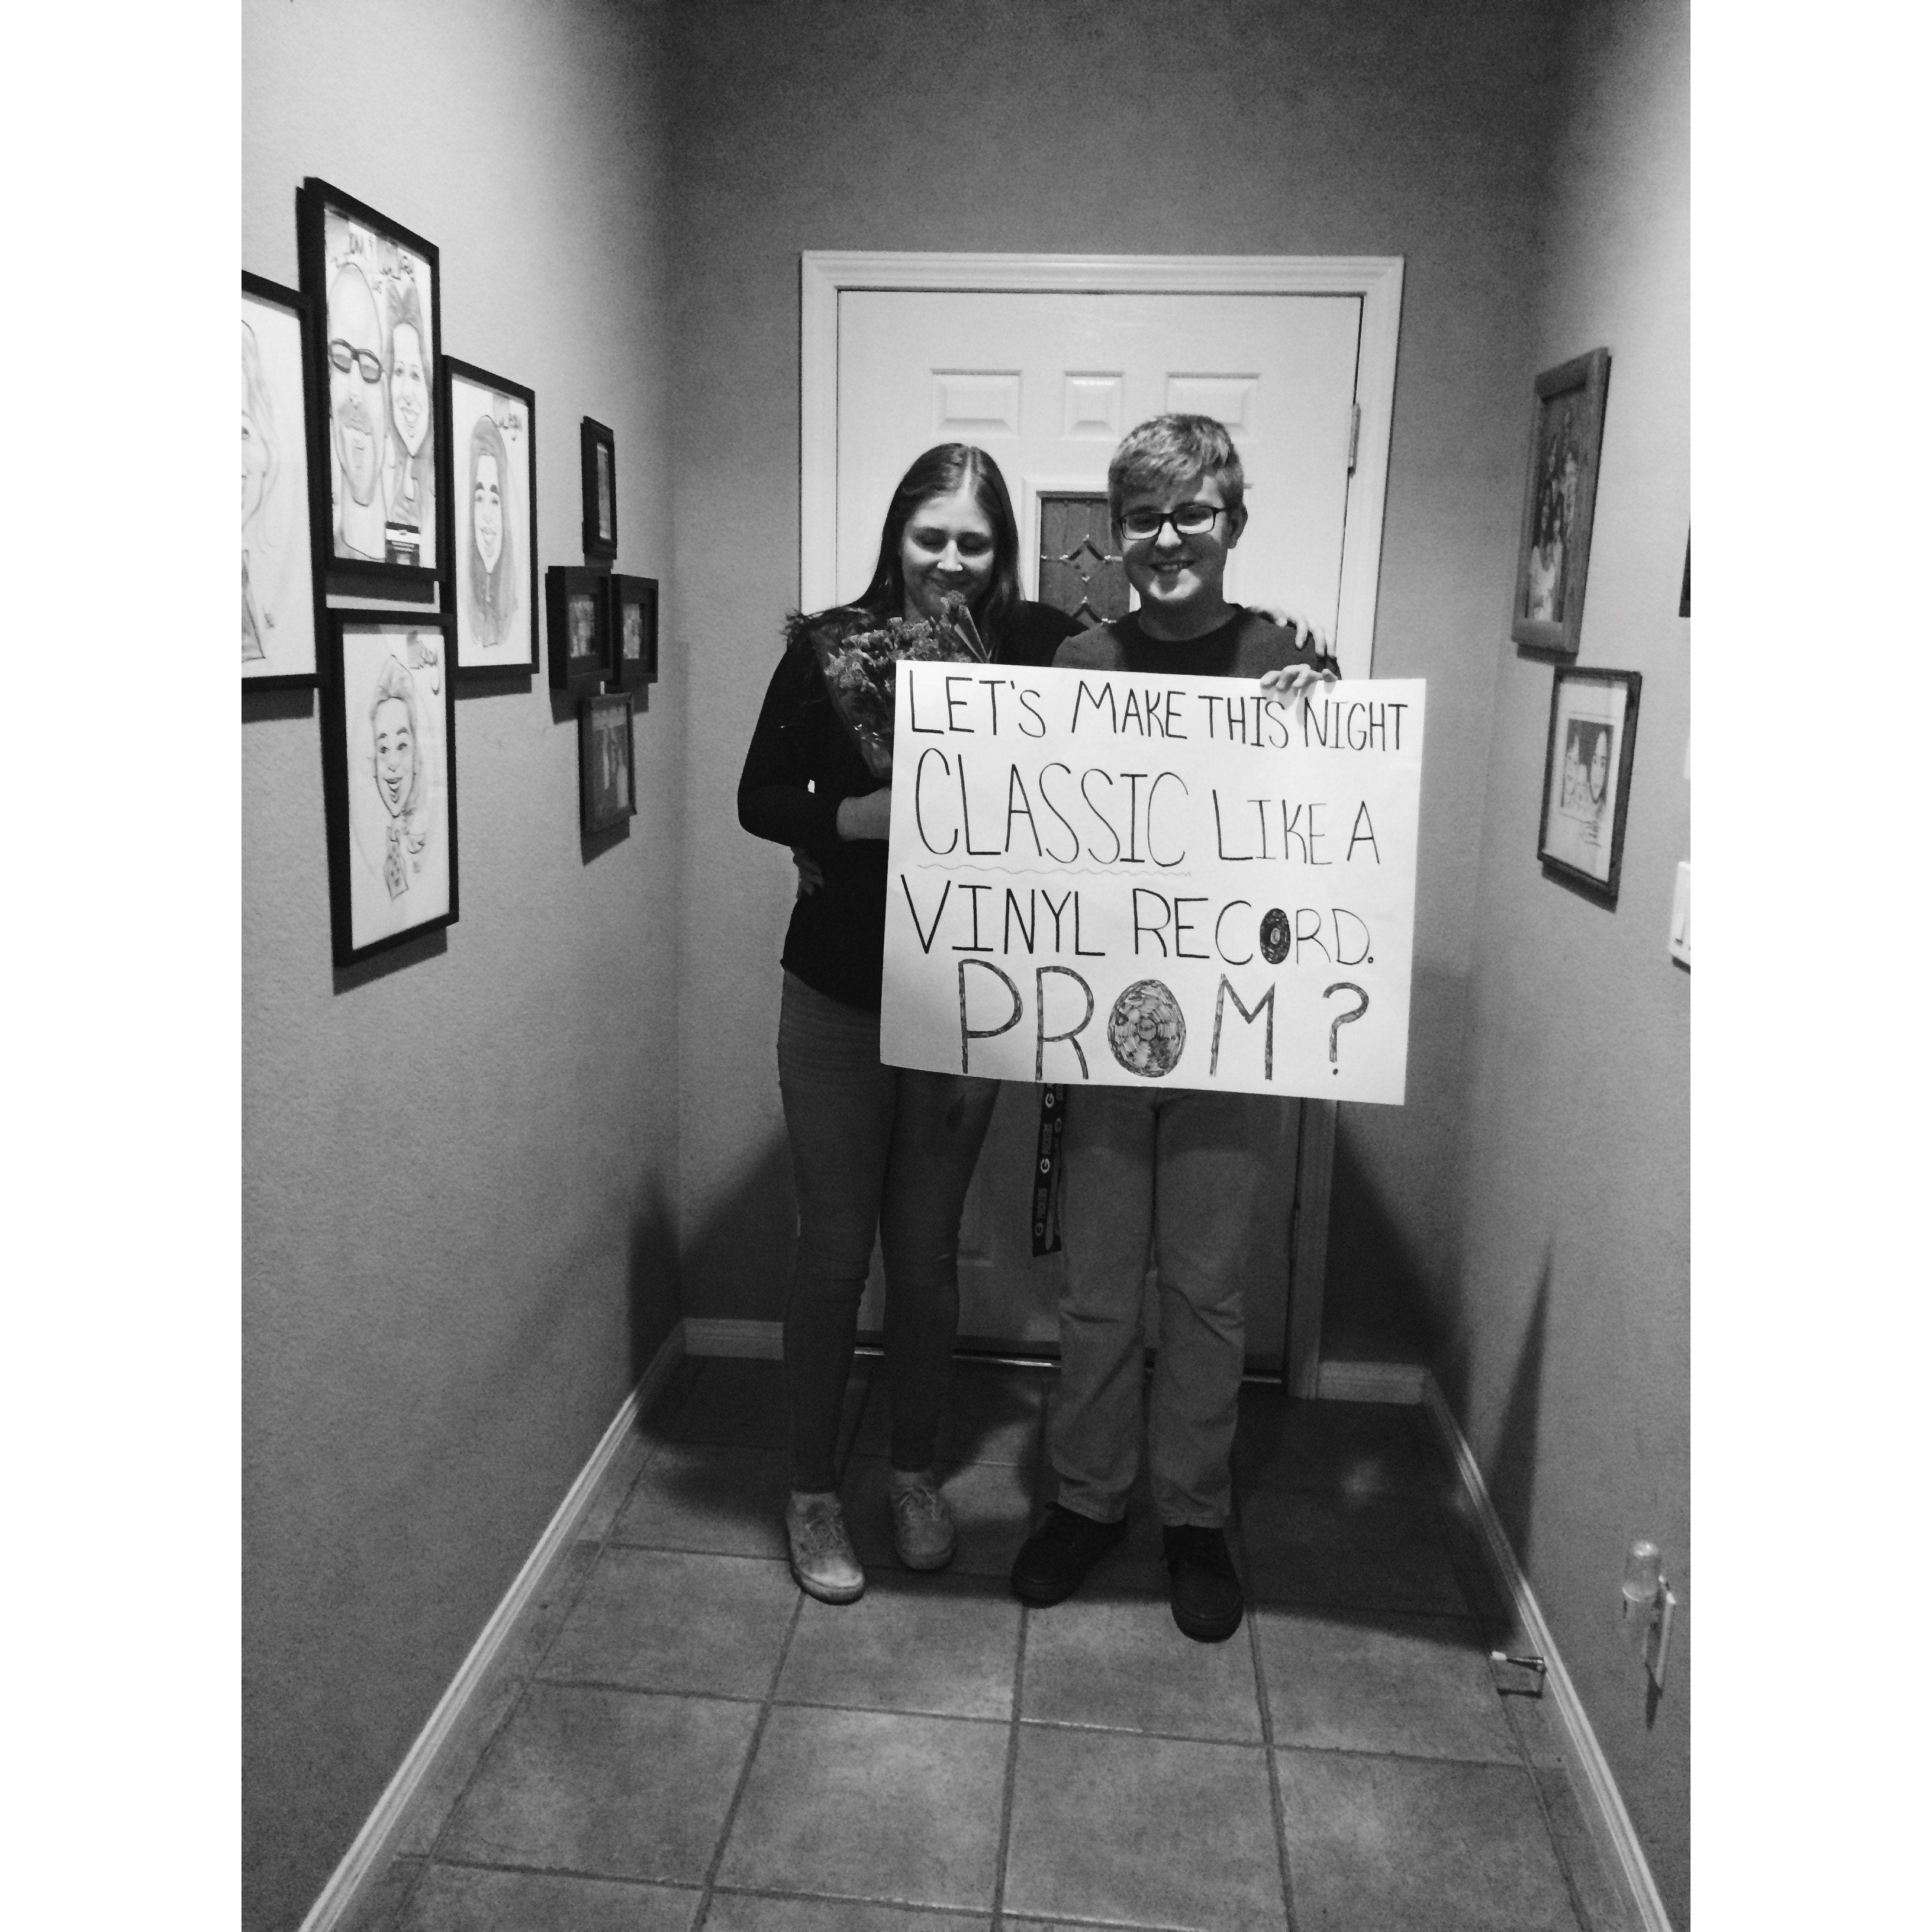 LET'S MAKE THIS NIGHT
CLASSIC LIKE A
VINYL RECORD.
PROM?